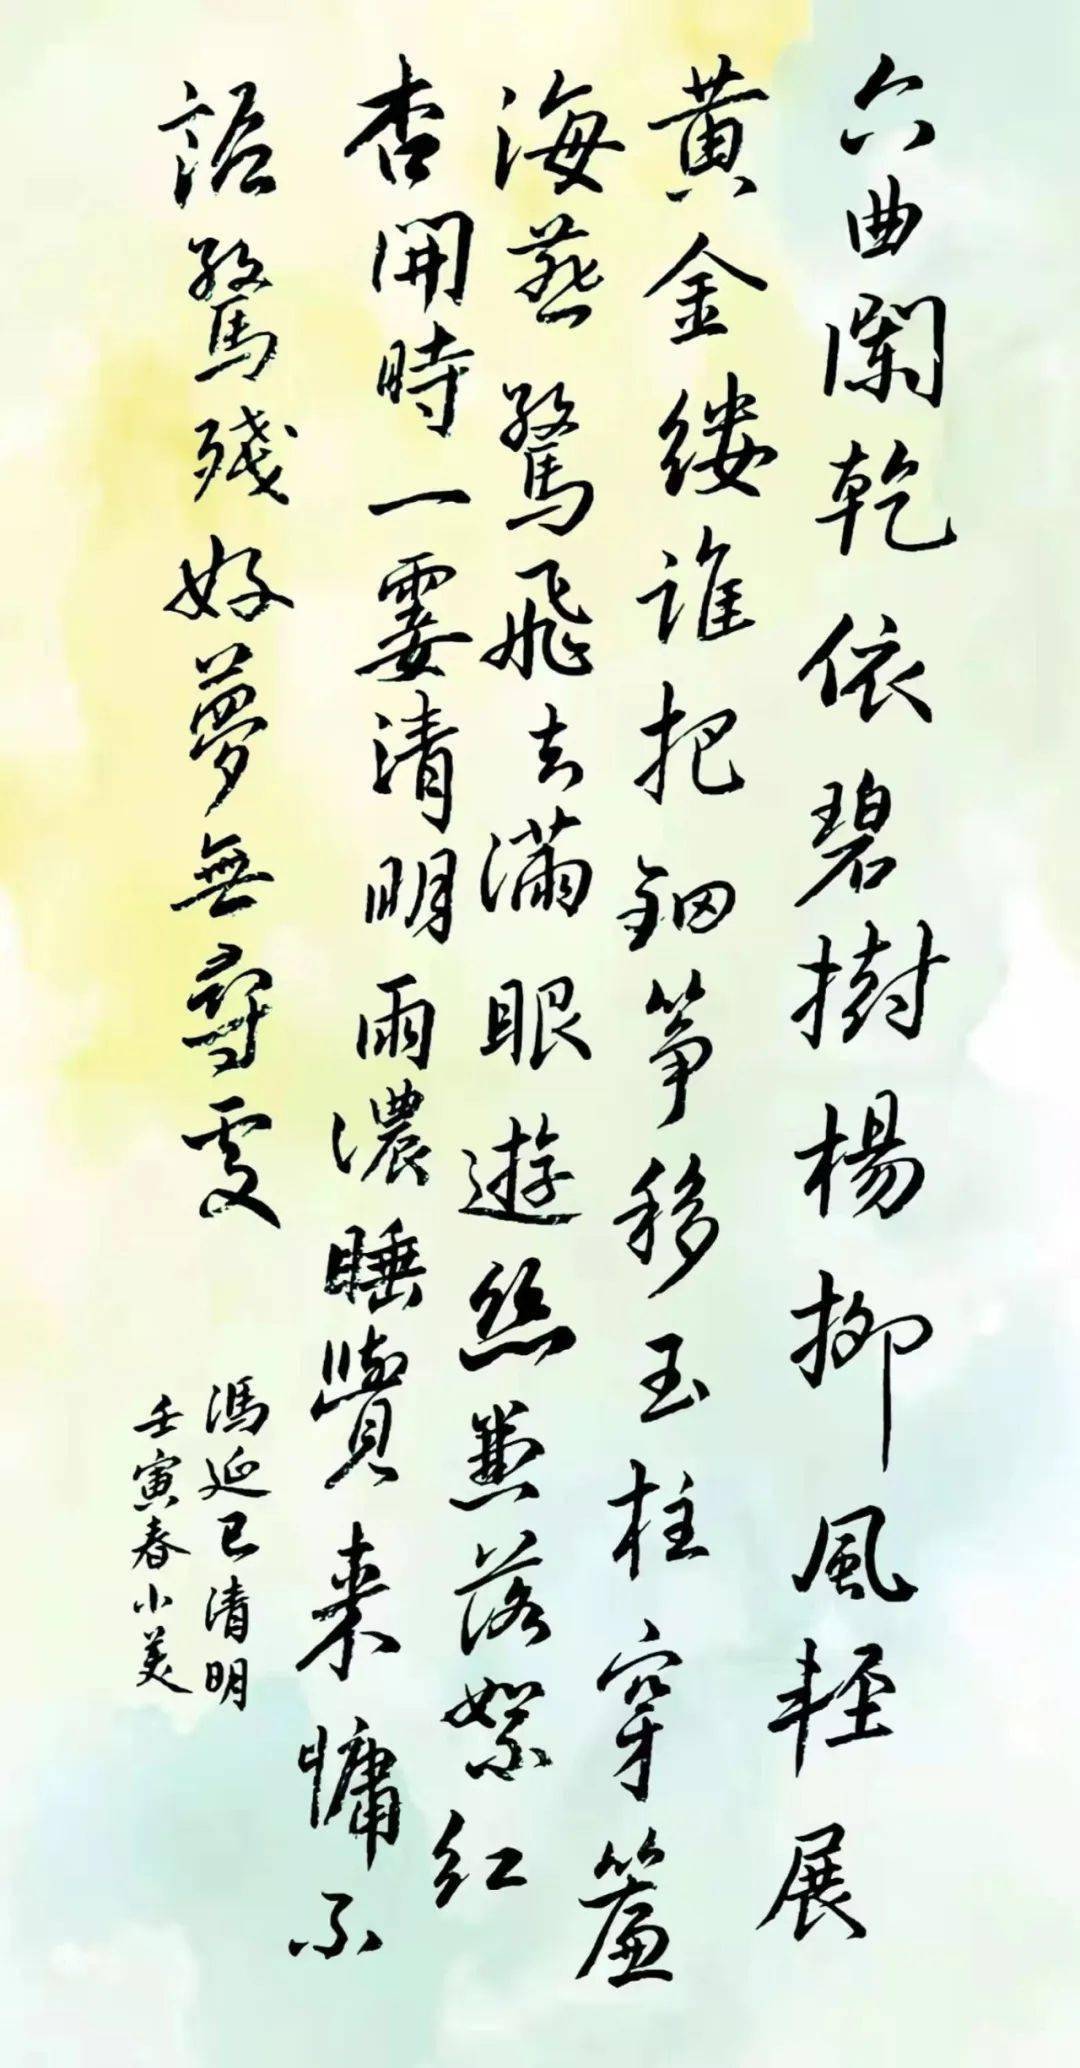 六曲闌乾依碧樹楊柳風輕展
黄金缕谁把钿筝移玉柱穿簾
海燕驚飛去滿眼遊絲兼落絮紅
杏開時一霎清明雨濃睡覺來慵不
語驚殘好夢無尋處
馮延巳清明
壬寅春小美